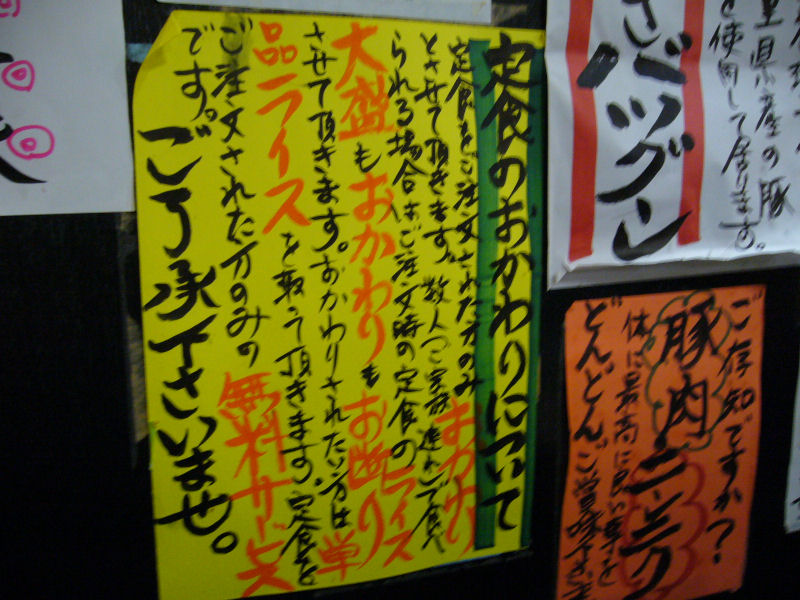 定食のおかわりについて
定食をご注文された方のみおかわり
とさせて頂きます。数人やご家族連れで食べ
られる場合はご注文時の定食のライス
大盛もおかわりもお断り
させて頂きます。おかわりされたい方は単
品ライスを取って頂きます。定食を
ご注文された方のみの無料サービス
です。
ご了承下さいませ。
さバツグン
県産の豚
を使用して居ります。
ご存知ですか?
豚肉ニンニク
どんどんご賞味下さいませ